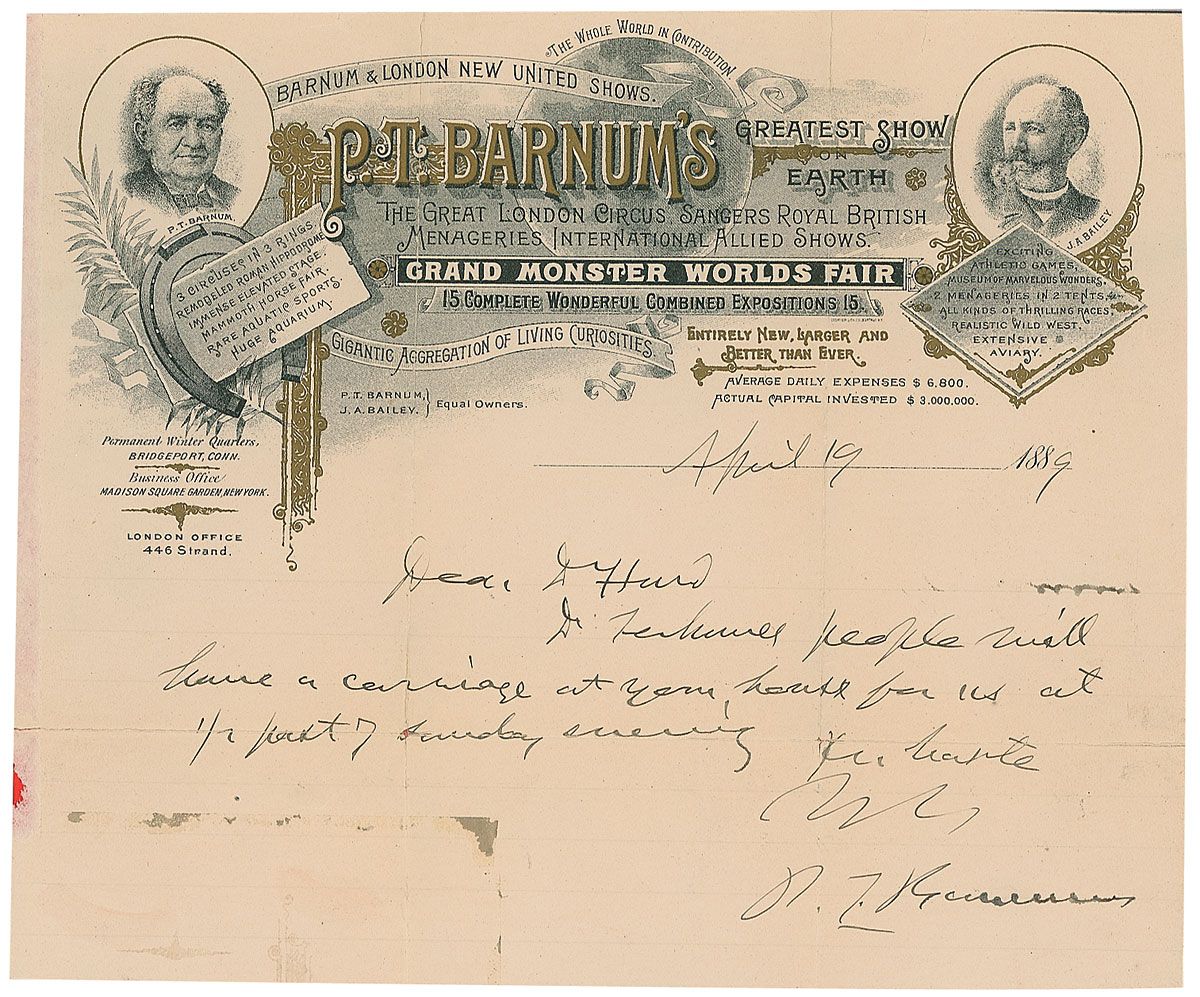 THE WHOLE WORLD IN CONTRIBUTION
BARNUM & LONDON NEW UNITED SHOWS.
P.T. BARNUM'S
GREATEST SHOW
ON
EARTH
THE GREAT LONDON CIRCUS SANGERS ROYAL BRITISH
MENAGERIES INTERNATIONAL ALLIED SHOWS.
GRAND MONSTER WORLDS FAIR
15 COMPLETE WONDERFUL COMBINED EXPOSITIONS 15.
GIGANTIC AGGREGATION OF LIVING CURIOSITIES.
ENTIRELY NEW, LARGER AND
BETTER THAN EVER.
AVERAGE DAILY EXPENSES $ 6.800.
ACTUAL CAPITAL INVESTED $ 3.000.000.
P.T. BARNUM.
3 CIRCUSES IN 3 RINGS.
REMODELED ROMAN HIPPODROME
IMMENSE ELEVATED STAGE.
MAMMOTH HORSE FAIR.
RARE AQUATIC SPORTS
HUGE AQUARIUM.
J.A. BAILEY.
EXCITING
ATHLETIC GAMES,
MUSEUM OF MARVELOUS WONDERS,
2 MENAGERIES IN 2 TENTS,
ALL KINDS OF THRILLING RACES,
REALISTIC WILD WEST,
EXTENSIVE
AVIARY.
P.T. BARNUM,
J.A. BAILEY.
Equal Owners.
Permanent Winter Quarters,
BRIDGEPORT, CONN.
Business Office
MADISON SQUARE GARDEN, NEW YORK.
LONDON OFFICE
446 Strand.
April 19 1889
Dear Dr Hurd
Dr people will
have a carriage at your house for us at
1/2 past 7 Sunday evening
In haste
P. T. Barnum